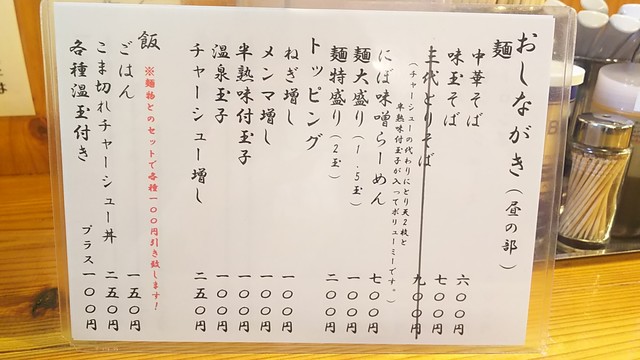 おしながき（昼の部）
麺
中華そば 六〇〇円
味玉そば 七〇〇円
三代どりそば 九〇〇円
（チャーシューの代わりにとり天2枚と
半熟味付玉子が入ってボリューミーです。）
にぼ味噌らーめん 七〇〇円
麺大盛り（1.5玉） 一〇〇円
麺特盛り（2玉） 二〇〇円
トッピング
ねぎ増し 一〇〇円
メンマ増し 一〇〇円
半熟味付玉子 一〇〇円
温泉玉子 一〇〇円
チャーシュー増し 二五〇円
飯
※麺物とのセットで各種一〇〇円引き致します！
ごはん 一五〇円
こま切れチャーシュー丼 二五〇円
各種温玉付き プラス一〇〇円